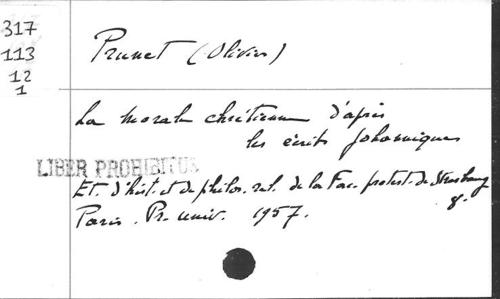 317
113
12
1
Prunet (Olivier)
La morale chrétienne d'après
les écrits johanniques
LIBER PROHIBITUS
Et. d'hist. et de philos. rel. de la Fac. protest. de Strasbourg
Paris. Pr. univ. 1957. 8.